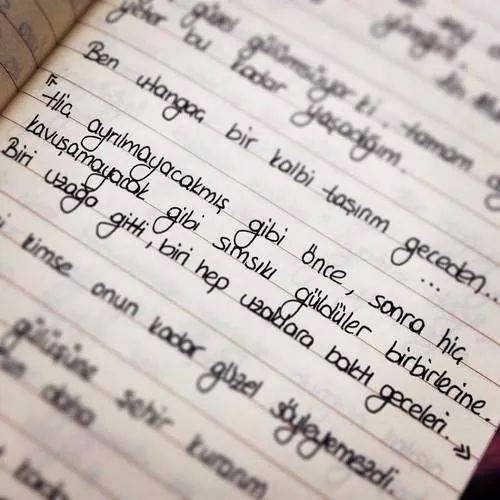 güzel gülümsüyor ki, tamam
yeter bu kadar yaşadığım.
Ben utangaç bir kalbi taşırım geceden...
"Hiç ayrılmayacakmış gibi önce, sonra hiç
kavuşamayacak gibi sımsıkı güldüler birbirlerine.
Biri uzağa gitti, biri hep uzaklara baktı geceleri. »
kimse onun kadar güzel söyleyemezdi.
gülüşüne şehir kurarım
daha